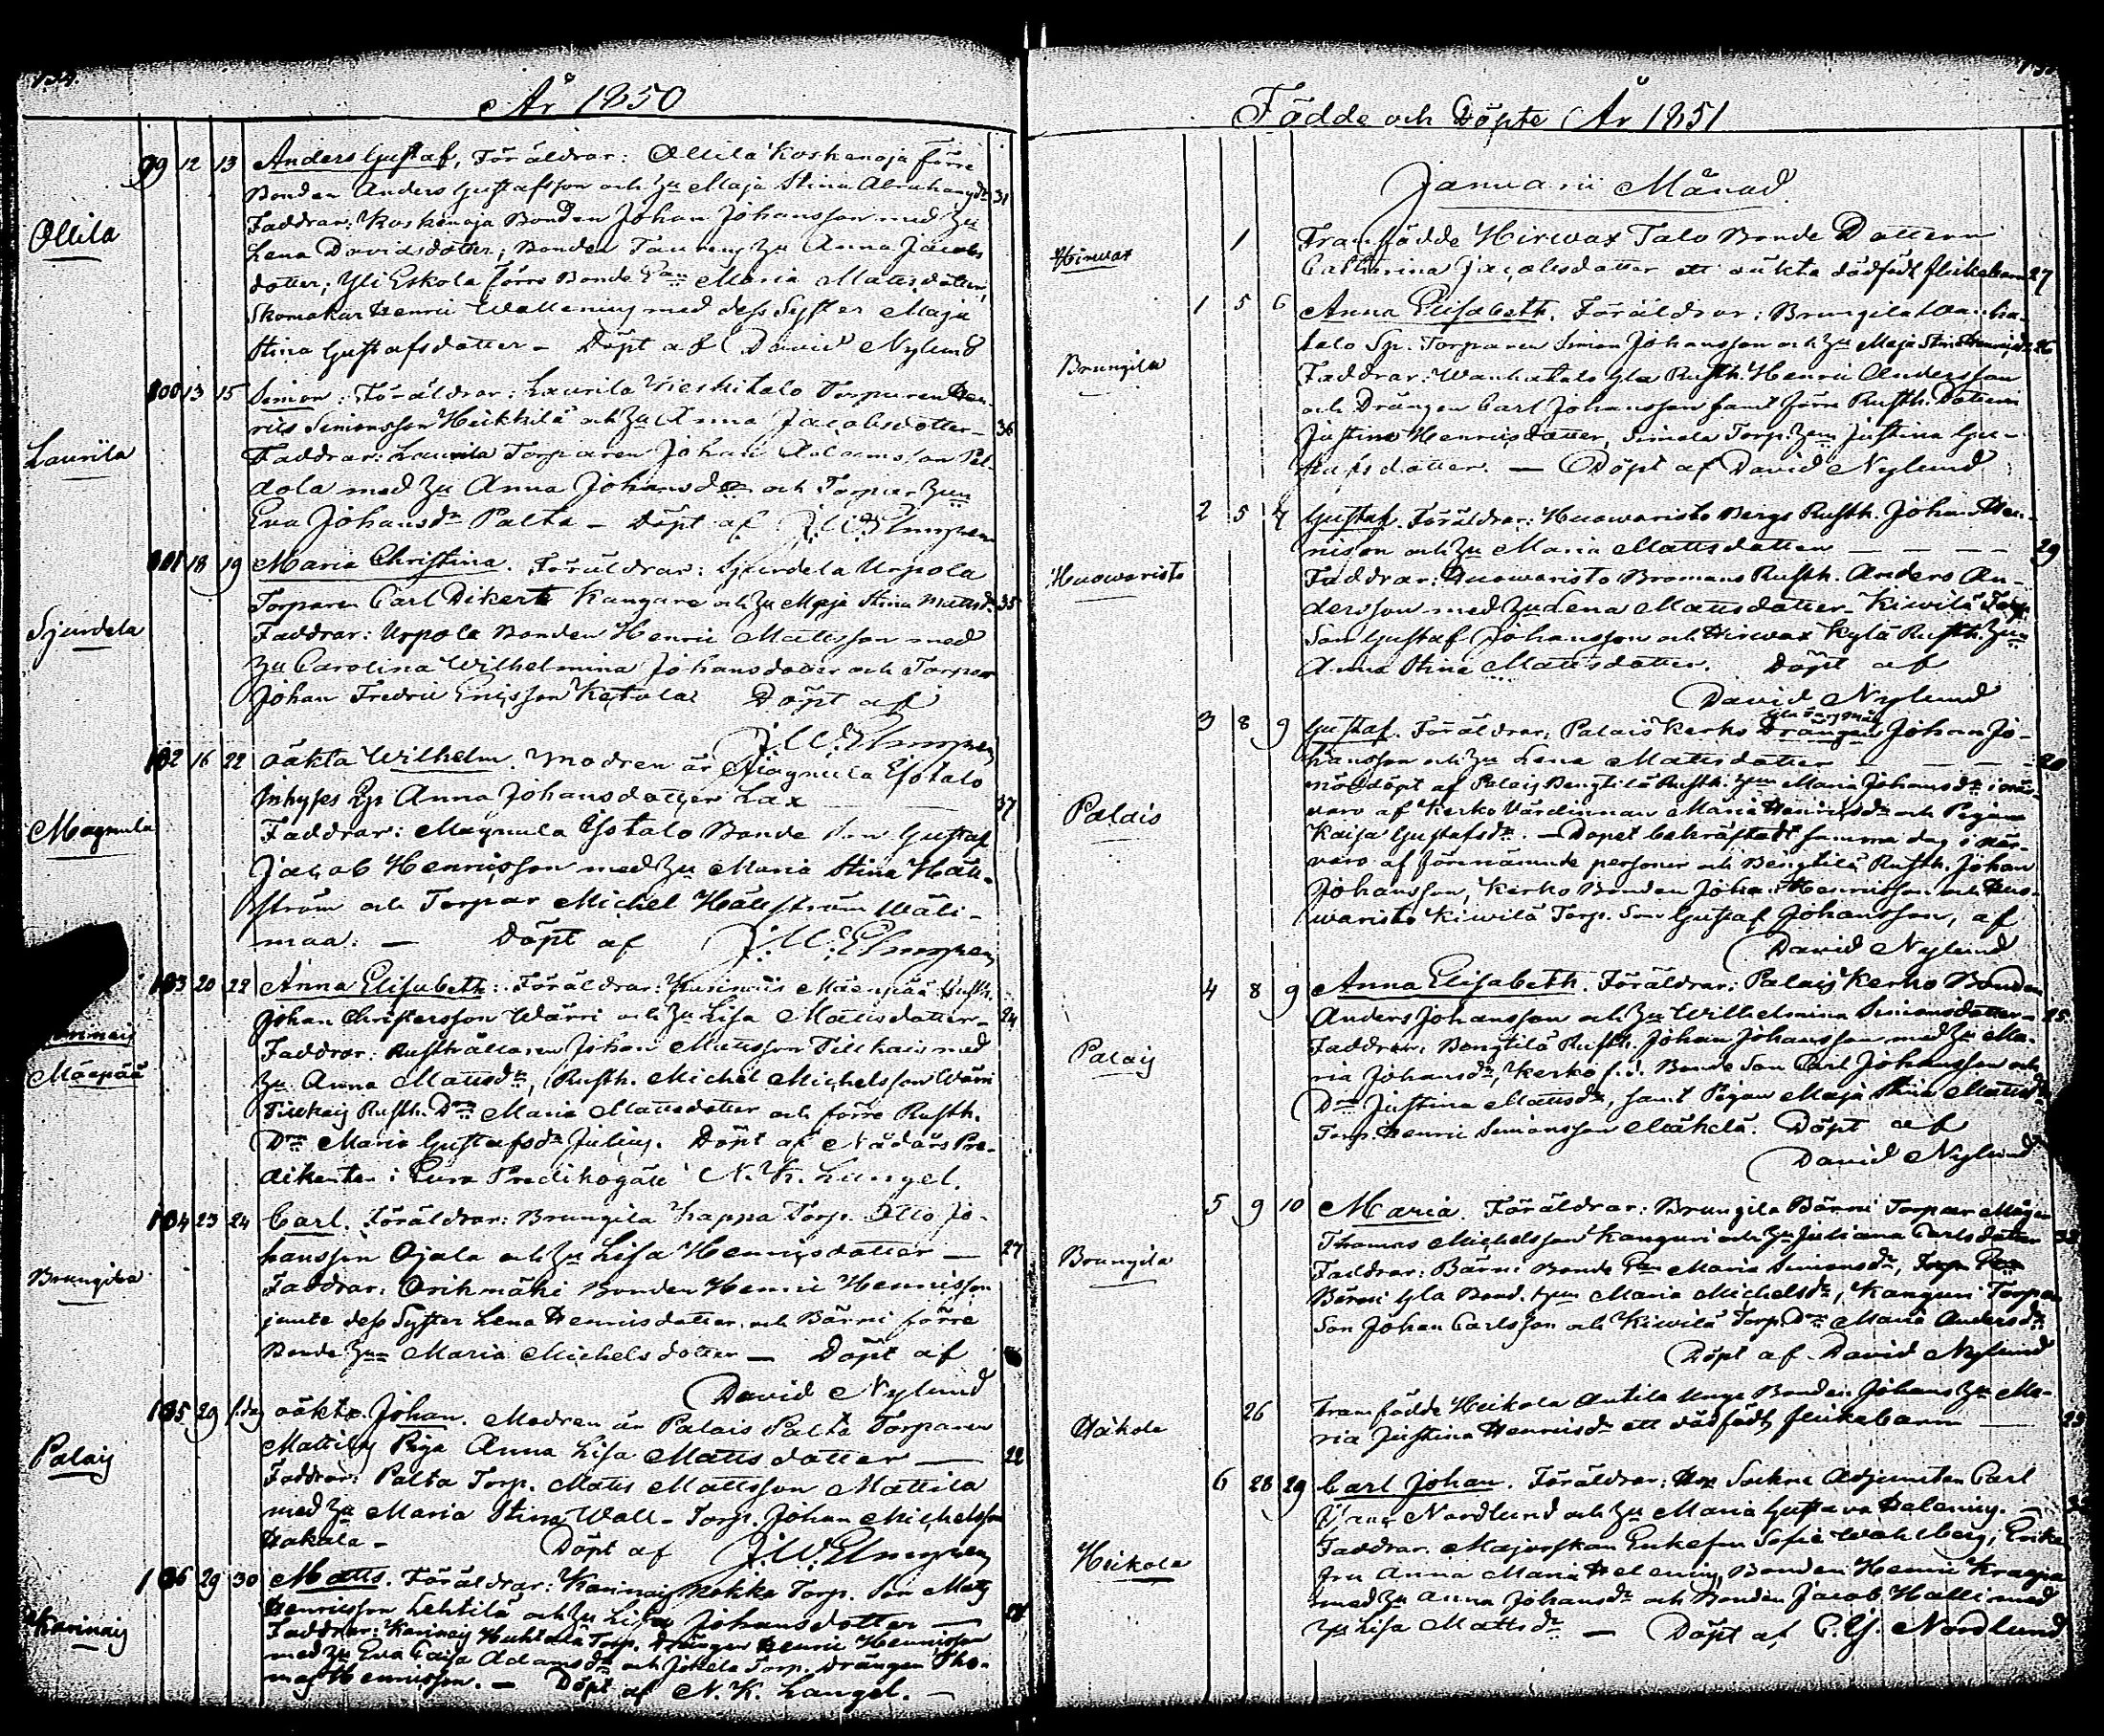 År 1850
Ollila
99 12 13 Anders Gustaf, Föräldrar: Ollila Koskenoja förre
Bonden Anders Gustafsson och Hu Maja Stina Abrahamsdr 31
Faddrar: Koskenoja Bonden Johan Johansson med Hu
Lena Davidsdotter; Bonden Hu Anna Jacobs
dotter; Yli Eskola förre Bonde Maria Mattsdotter,
Skomakar Henric Wallenius med dess Syster Maja
Stina Gustafsdotter - Döpt af David Nylund
Laurila
100 13 15 Simon. Föräldrar: Laurila Yieskitalo Torparen Hen-
rics Simonsson Heikkilä och Hu Anna Jacobsdotter - 36
Faddrar: Laurila Torparen Johan Adamsson Pel-
dola med Hu Anna Johansdr och Torpar Hun
Eva Johansdr Palta - Döpt af J.W. Elmgren
Sjundela
101 18 19 Maria Christina. Föräldrar: Sjundela Uspola
Torparen Carl Dikert Kangare och Hu Maja Stina Mattsdr 35
Faddrar: Uspola Bonden Henric Mattsson med
Hu Carolina Wilhelmina Johansdotter och Torpar
Johan Fredric Ericsson Ketola Döpt af
J.W. Elmgren
Magnula
102 16 22 oäkta Wilhelm. Modren är Magnula Esotalo
Inhyses Anna Johansdotter Lax 37
Faddrar: Magnula Esotalo Bonde Son Gustaf
Jacob Henricsson med Hu Maria Stina Häll-
ström och Torpar Michel Hällström Wäli-
maa. — Döpt af J.W. Elmgren
Mäenpää
103 20 22 Anna Elisabeth. Föräldrar: Karinais Mäenpää Rusth.
Johan Christersson Wärri och Hu Lisa Mattsdotter - 24
Faddrar: Rusthållaren Johan Mattsson Tillkais med
Hu Anna Mattsdr, Rusth. Michel Michelsson Wärri
Tillkais Rusth. Dr Maria Mattsdotter och förre Rusth.
Dr Maria Gustafsdr Julius. Döpt af Nådårs Pre-
dikanten i Eura Predikogäll N.K. Langel.
Brungila
104 23 24 Carl. Föräldrar: Brungila Kappa Torp. Otto Jo-
hansson Ojala och Hu Lisa Henricsdotter — 27
Faddrar: Orihmäki Bonden Henric Henricsson
jemte dess Syster Lena Henricsdotter och Bärni förre
Bonde Hun Maria Michelsdotter — Döpt af
David Nylund
Palais
105 29 s.dag oäkta Johan. Modren är Palais Palta Torparen
Mattilas Piga Anna Lisa Mattsdotter — 22
Faddrar: Palta Torp. Matts Mattsson Mattila
med Hu Maria Stina Wall - Torp. Johan Michelsson
Hakala - Döpt af J.W. Elmgren
Karinais
106 29 30 Matts. Föräldrar: Karinais Nokka Torp. Son Matts
Henricsson Lehtilä och Hu Lisa Johansdotter —
Faddrar: Karinais Huhtala Torp. Drängen Henric Henricsson
med Hu Eva Caisa Adamsdr och Jokela Torp. Drängen Tho-
mas Henricsson. — Döpt af N.K. Langel. —
Födde och Döpte År 1851
Januarii Månad
Hirwax
1 Framfödde Hirwax Talo Bonde Dottern
Catharina Jacobsdotter ett oäkta dödfödt flickebarn 27
Brungila
1 5 6 Anna Elisabeth. Föräldrar: Brungila Wanha-
talo Sp. Torparen Simon Johansson och Hu Maja Stina Henricsdr 26
Faddrar: Wanhatalo Gla Rusth. Henric Andersson
och Drängen Carl Johansson samt förre Rusth. Dottern
Justina Henricsdotter, Simola Torp. Hun Justina Gu-
stafsdotter. — Döpt af David Nylund
Huowaristo
2 5 7 Gustaf. Föräldrar: Huowaristo Bergs Rusth. Johan Hen-
ricsson och Hu Maria Mattsdotter — — — — 29
Faddrar: Huowaristo Bromans Rusth. Anders An-
dersson med Hu Lena Mattsdotter - Kiwilä Torp.
Son Gustaf Johansson och Hirwax Kylä Rusth. Hun
Anna Stina Mattsdotter. Döpt af
David Nylund
Palais
3 8 9 Gustaf. Föräldrar: Palais Kerko Drängen Johan Jo-
hansson och Hu Lena Mattsdotter — — — 20
nöddöpt af Palais Bengtilä Rusth. Hun Maria Johansdr i när-
varo af Kerko Värdinnan Maria Henricsdr och Pigan
Kaisa Gustafsdr. — Dopet bekräftadt samma dag i när-
varo af förenämnde personer och Bengtilä Rusth. Johan
Johansson, Kerko Bonden Johan Henricsson och Huo-
waristo Kiwilä Torp. Son Gustaf Johansson, af
David Nylund
Palais
4 8 9 Anna Elisabeth. Föräldrar: Palais Kerko Bonden
Anders Johansson och Hu Wilhelmina Simonsdotter - 25
Faddrar: Bengtilä Rusth. Johan Johansson med Hu Ma-
ria Johansdr, Kerko f.d. Bonde Son Carl Johansson och
Dr Justina Mattsdr, samt Pigan Maja Stina Mattsdr
Torp. Henric Simonsson Mäkelä. Döpt af
David Nylund
Brungila
5 9 10 Maria. Föräldrar: Brungila Bärni Torpar Mågen
Thomas Michelsson Kanguri och Hu Juliana Carlsdotter
Faddrar: Bärni Bonde Maria Simonsdr,
Bärni Gla Bond. Hun Maria Michelsdr, Kanguri Torpar
Son Johan Carlsson och Kiwilä Torp. Dr Maria Andersdr
Döpt af David Nylund
26 Framfödde Heikola Antila Unge Bonden Johans Hu Ma-
ria Justina Henricsdr ett dödfödt flickebarn — 23
Heikola
6 28 29 Carl Johan. Föräldrar: Sockne Adjuncten Carl
Nordlund och Hu Maria Gustava Helenius. —
Faddrar. Majorskan Enkefru Sofie Wahlberg; Enke-
fru Anna Maria Helenius, Bonden Henric Kraapa
med Hu Anna Johansdr och Bonden Jacob Halli med
Hu Lisa Mattsdr — Döpt af C.G. Nordlund